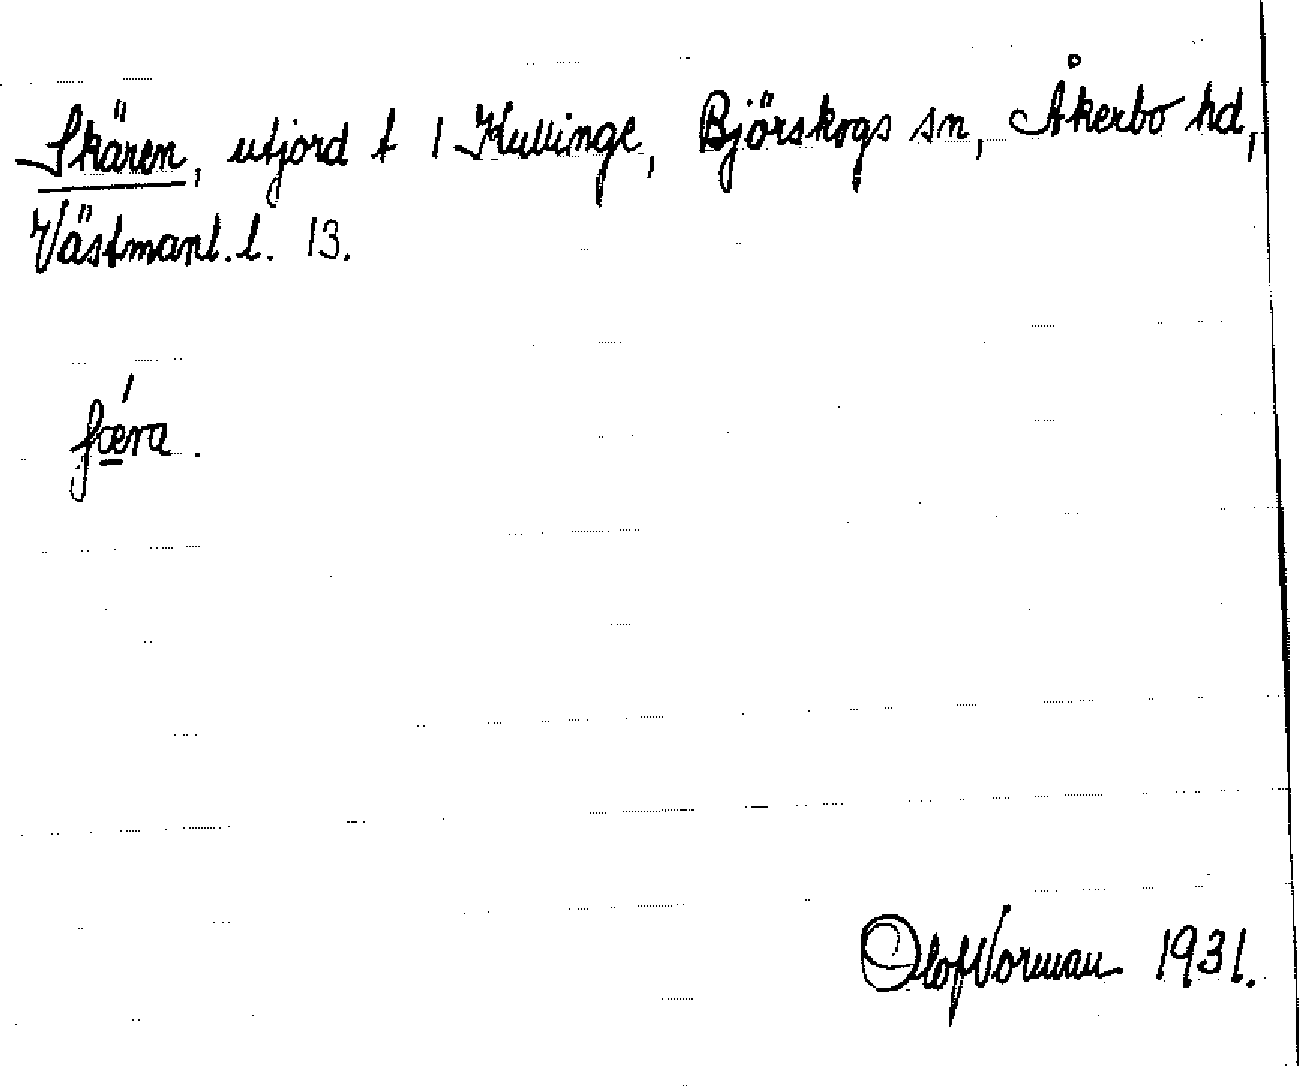 Skären, utjord t 1 Kullinge, Björskogs sn, Åkerbo hd,
Västmanl. l. 13.
fǽra.
Olof Norman 1931.